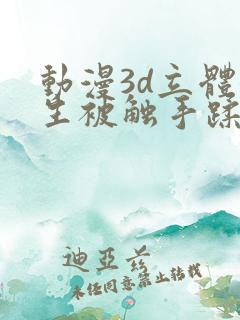 動漫3d立體
生被触手蹂
迪亞義
未经同意禁止转载